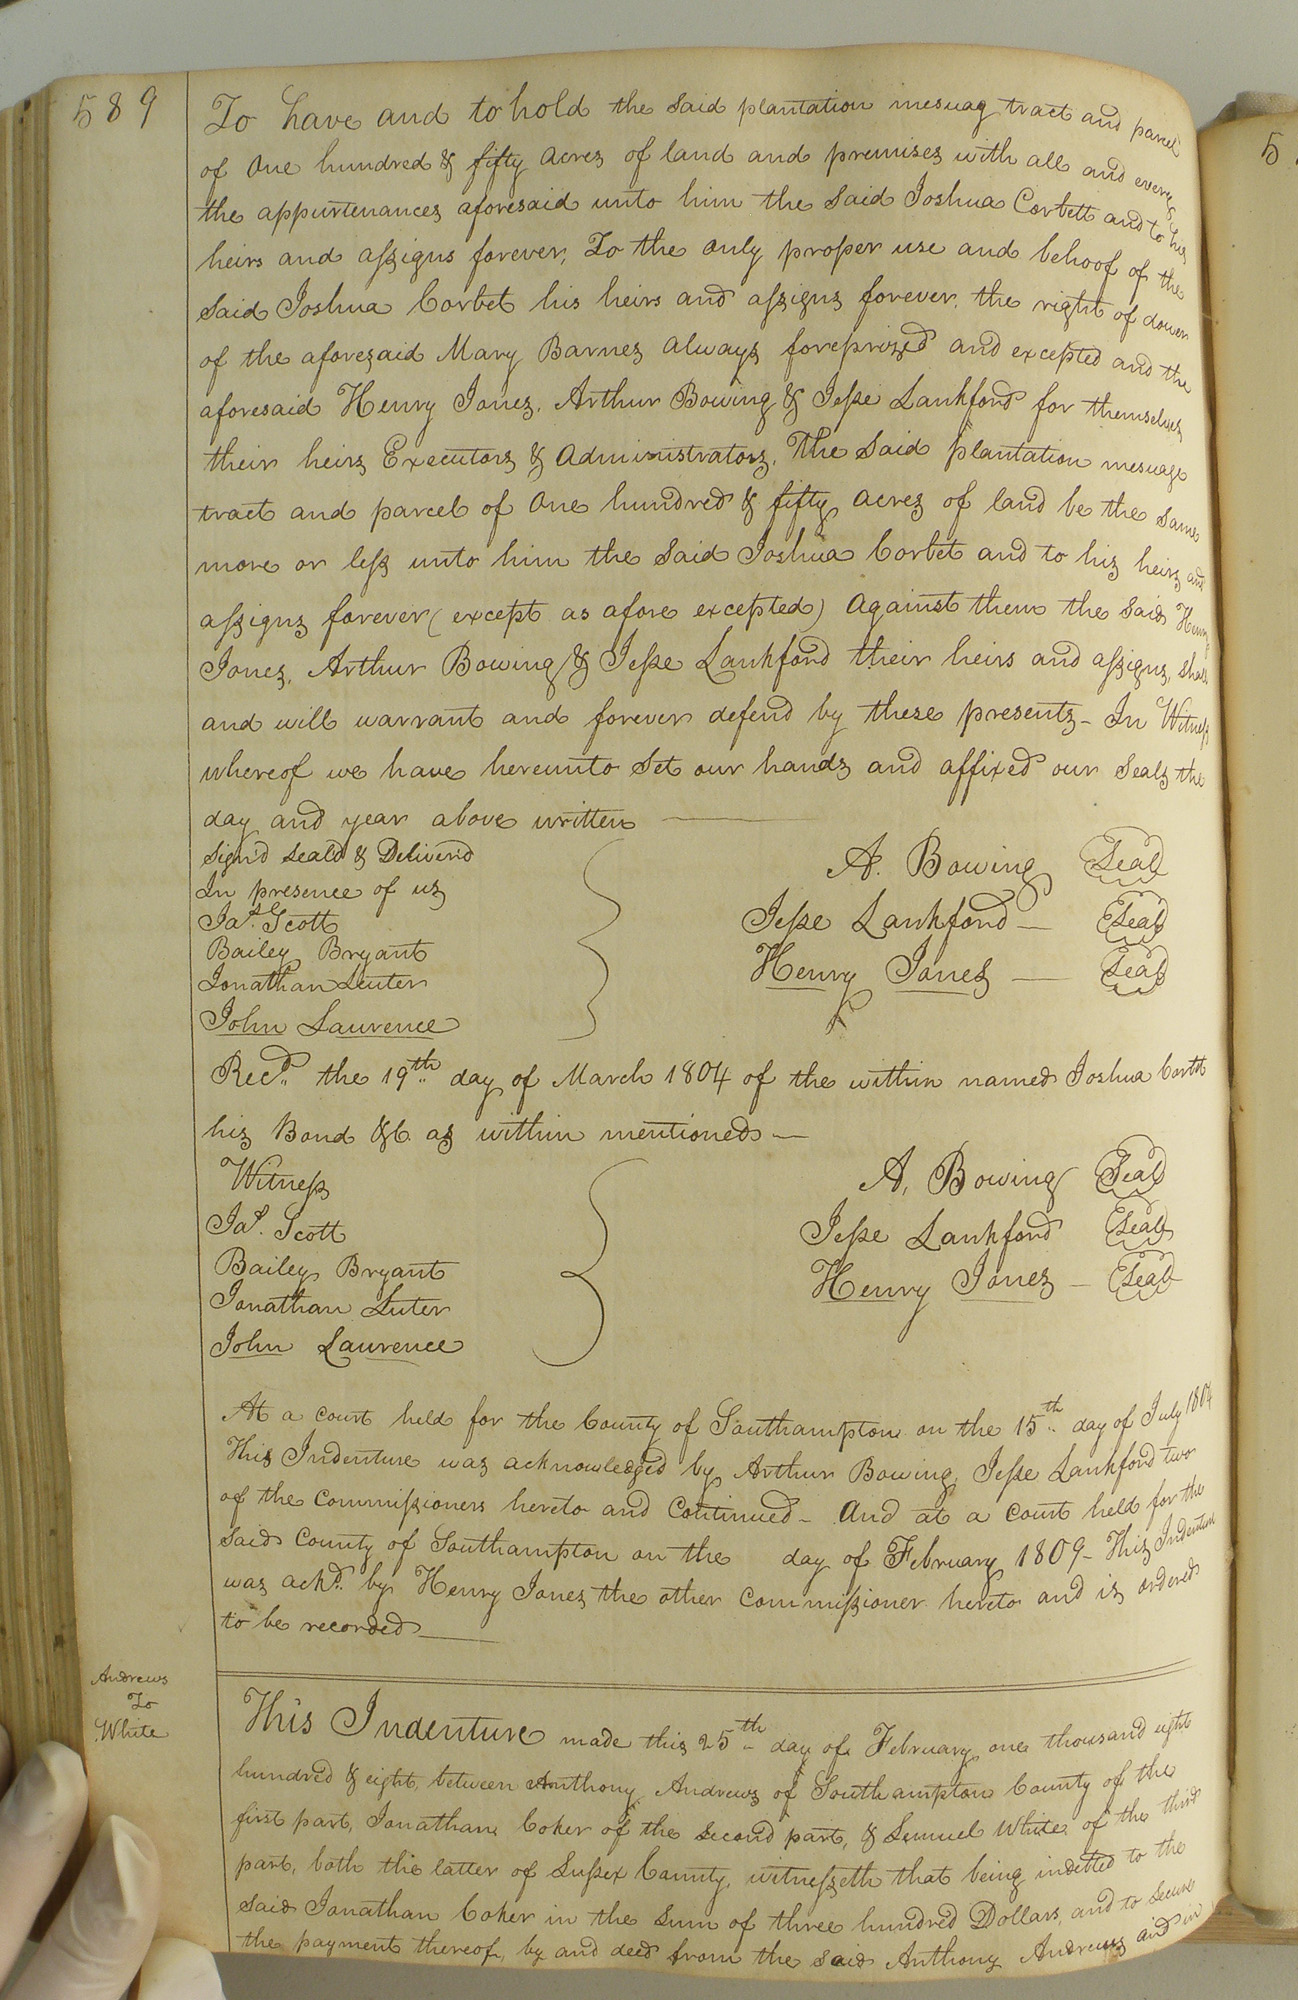 589
To have and to hold the said plantation mesuag tract and parcel
of One hundred & fifty acres of land and premises with all and every
the appurtenances aforesaid unto him the said Joshua Corbett and to his
heirs and assigns forever, To the only proper use and behoof of the
said Joshua Corbet his heirs and assigns forever, the right of dower
of the aforesaid Mary Barnes always foreprized and excepted and the
aforesaid Henry Jones, Arthur Bowing & Jesse Lankford for themselves
their heirs Executors & administrators, The said plantation mesuage
tract and parcel of One hundred & fifty acres of land be the same
more or less unto him the said Joshua Corbet and to his heirs and
assigns forever (except as afore excepted) against them the said Henry
Jones, Arthur Bowing & Jesse Lankford their heirs and assigns, shall
and will warrant and forever defend by these presents - In Witness
whereof we have hereunto set our hands and affixed our seals the
day and year above written
Sign'd seald & Deliver'd
In presence of us
Jas. Scott
Bailey Bryant
Jonathan Leuter
John Laurence
A. Bowing Seal
Jesse Lankford Seal
Henry Jones Seal
Recd. the 19th day of March 1804 of the within named Joshua Corbtt
his Bond &C. as within mentioned
Witness
Jas. Scott
Bailey Bryant
Jonathan Luter
John Laurence
A. Bowing Seal
Jesse Lankford Seal
Henry Jones Seal
At a court held for the County of Southampton on the 15th day of July 1804
This Indenture was acknowledged by Arthur Bowing, Jesse Lankford two
of the commissioners hereto and Continued - And at a court held for the
said County of Southampton on the day of February 1809 - This Indenture
was ackd. by Henry Jones the other commissioner hereto and is ordered
to be recorded
Andrews
To
White
This Indenture made this 25th day of February one thousand eight
hundred & eight, between Anthony Andrews of Southampton County of the
first part, Jonathan Coker of the second part, & Samuel White of the third
part, both the latter of Sussex County, witnesseth that being indetted to the
said Jonathan Coker in the sum of three hundred Dollars, and to secure
the payment thereof, by and deed from the said Anthony Andrews and in
5